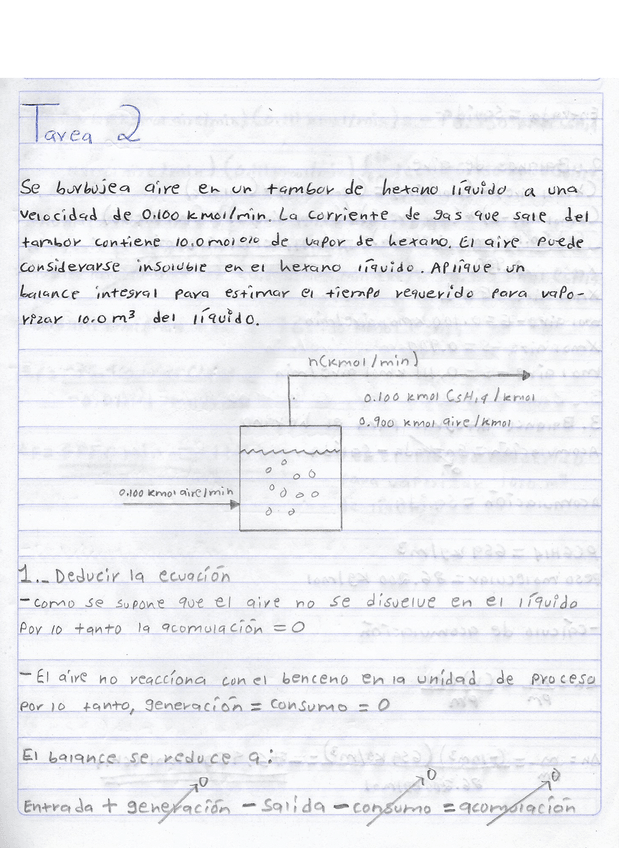 Tarea 2
Se burbujea aire en un tambor de hexano líquido a una
velocidad de 0.100 kmol/min. La corriente de gas que sale del
tambor contiene 10.0 mol o/o de vapor de hexano. El aire puede
considerarse insoluble en el hexano líquido. Aplique un
balance integral para estimar el tiempo requerido para vapo-
rizar 10.0 m³ del líquido.
n(kmol/min)
0.100 kmol C₅H₁₄/kmol
0.900 kmol aire/kmol
0.100 kmol aire/min
1._ Deducir la ecuación
-como se supone que el aire no se disuelve en el líquido
Por lo tanto la acomulación = 0
-El aire no reacciona con el benceno en la unidad de proceso
por lo tanto, generación = consumo = 0
El balance se reduce a:
0 0 0
Entrada + generación - salida - consumo = acomulación